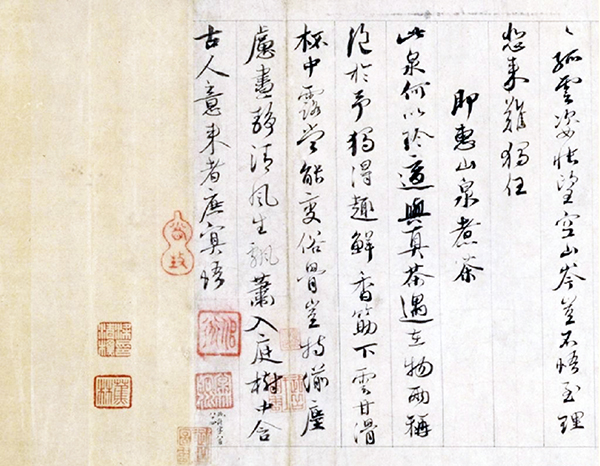 孤雲姿悵望空山岑不悟至理
來難獨任
即惠山泉煮茶
此泉何以珍適與真茶遇在物兩稱
絕於予獨得趣鮮香筯下雲甘滑
杯中露當能變俗骨豈特湔塵
慮晝靜清風生飄蕭入庭樹中含
古人意來者庶冥悟